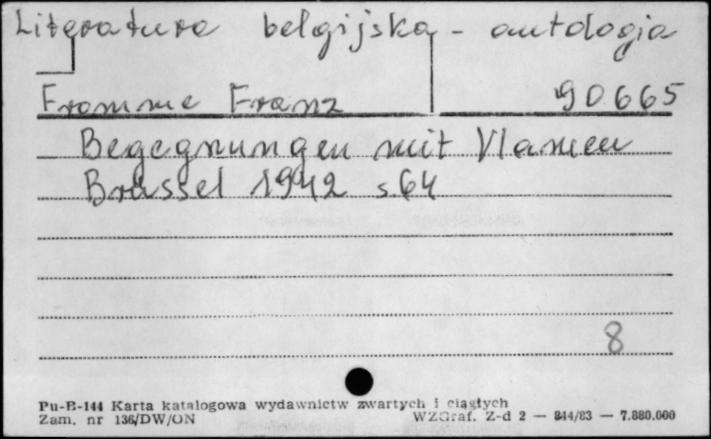 Literatura belgijska - antologia
Fromme Franz 90665
Begegnungen mit Vlamen
Brüssel 1942 s 64
8
Pu-B-144 Karta katalogowa wydawnictw zwartych i ciągłych
Zam. nr 136/DW/ON WZGraf. Z-d 2 — 844/83 — 7.880.000